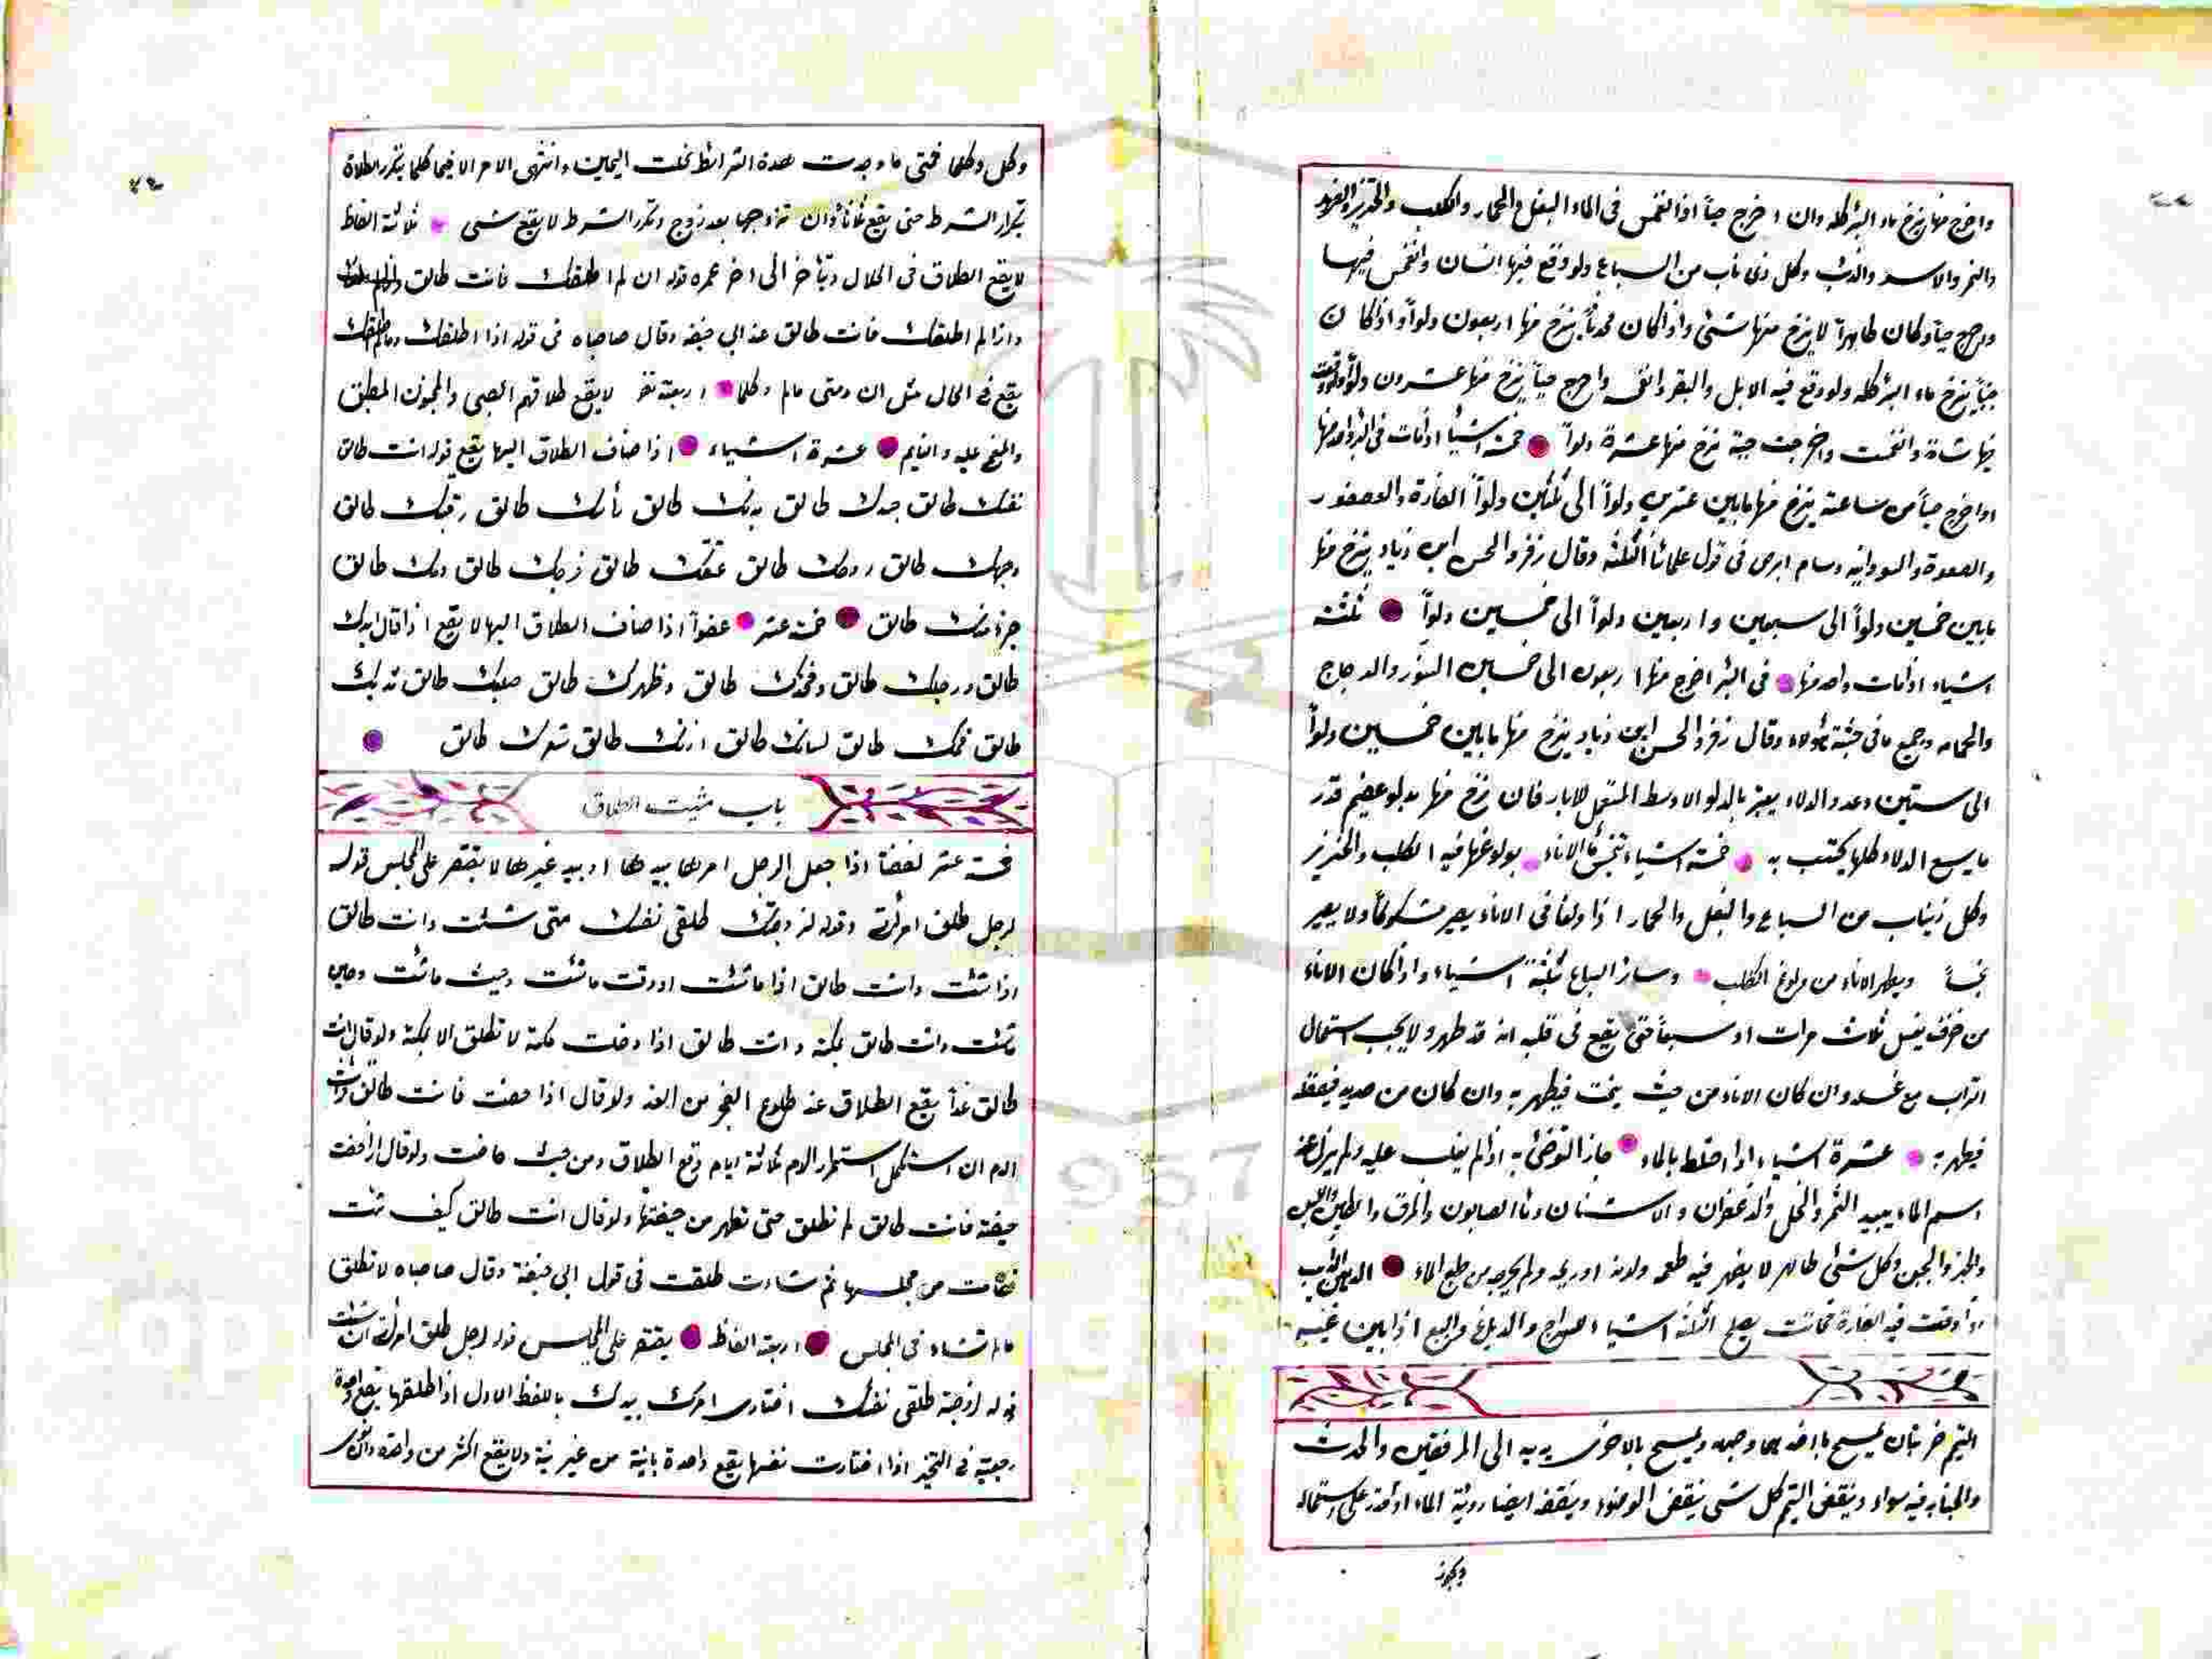 واخرج منها ينزخ ماء البئر كله وان اخرج حياً اذا انغمس فى الماء البغل والحمار والكلب والخنزير والفهد
والنمر والاسد والذئب وكل ذى ناب من السباع ولو وقع فيها انسان وانغمس فيها
وخرج حياً وكان طاهراً لا ينزخ منها شئ واذا كان محدثاً ينزخ منها اربعون دلواً واذا كان
جنباً ينزخ ماء البئر كله ولو وقع فيه الابل والبقر واخرج حياً ينزخ منها عشرون دلواً ولو وقعت
فيها شاة وانغمست واخرجت حية نزخ منها عشرة دلواً خمسة اشياء اذا مات فى البئر واحد منها
واخرج ميتاً من ساعته ينزخ منها مابين عشرين دلواً الى ثلثين دلواً الفارة والعصفور
والصعوة والسودانيه وسام ابرص فى قول علمائنا الثلثة وقال زفر والحسن ابن زياد ينزخ منها
مابين خمسين دلواً الى سبعين واربعين دلواً الى خمسين دلواً ثلثة
اشياء اذا مات واحد منها فى البئر اخرج منها اربعون الى خمسين السنور والدجاج
والحمامه وجميع مافى جثة هؤلاء وقال زفر والحسن ابن زياد ينزخ منها مابين خمسين دلواً
الى ستين وعدد الدلاء يعتبر بالدلو الاوسط المستعمل للابار فان نزخ منها بدلو عظيم قدر
مايسع الدلاء كلها يحتسب به خمسة اشياء تنجس الاناء بولوغها فيه الكلب والخنزير
وكل ذيناب من السباع والبغل والحمار اذا ولغا فى الاناء يصير مشكوكاً ولا يصير
نجساً ويطهر الاناء من ولوغ الكلب وسائر السباع ثلثة اشياء واذا كان الاناء
من خزف يغسل ثلاث مرات او سبعاً حتى يقع فى قلبه انه قد طهر ولا يجب استعمال
التراب مع غسله وان كان الاناء من حيث ينحت فيطهر به وان كان من حديد
فيطهر به عشرة اشياء اذا اختلط بالماء جاز التوضئ به اذا لم يغلب عليه ولم يزل عنه
اسم الماء نبيذ التمر والخل والزعفران والاشنان وماء الصابون والمرق والطين واللبن
والخبز والجبن وكل شئ طاهر لا يظهر فيه طعمه ولونه او ريحه ولم يخرجه من طبع الماء الدهن الذائب
اذا وقعت فيه الفارة فماتت يصلح لثلثة اشياء السراج والدباغ والبيع اذا بين عيبه
التيمم ضربتان يمسح باحدهما وجهه ويمسح بالاخرى يديه الى المرفقين والحدث
والجنابه فيه سواء وينقض التيمم كل شئ ينقض الوضوء وينقضه ايضا رؤية الماء اذا قدر على استعماله
ويجوز
وكل وكلما فمتى ما وجدت هذه الشرائط نحلت اليمين وانتهى الامر الا فيما كلما يتكرر الطلاق
بتكرار الشرط حتى يقع ثلاثاً وان تزوجها بعد زوج وتكرر الشرط لا يقع شئ ثلاثة الفاظ
لا يقع الطلاق فى الحال ويتأخر الى اخر عمره قوله ان لم اطلقك فانت طالق
واذا لم اطلقك فانت طالق عند ابى حنيفه وقال صاحباه فى قوله اذا اطلقك ومالم اطلقك
يقع فى الحال مثل ان ومتى مالم وكلما اربعة نفر لا يقع طلاقهم الصبى والمجنون المطبق
والمغمى عليه والنايم عشرة اشياء اذا ضاف الطلاق اليها يقع قوله انت طالق
نفسك طالق جسدك طالق بدنك طالق رأسك طالق رقبتك طالق
وجهك طالق روحك طالق عنقك طالق فرجك طالق دمك طالق
جزء منك طالق خمسة عشر عضواً اذا ضاف الطلاق اليها لا يقع اذا قال يدك
طالق ورجلك طالق وفخذك طالق وظهرك طالق صلبك طالق ثديك
طالق فمك طالق لسانك طالق اذنك طالق شعرك طالق
باب مثبت الطلاق
خمسة عشر لفضاً اذا جعل الرجل امرها بيدها او بيد غيرها لا يقتصر على المجلس قوله
لرجل طلق امرأته وقوله لزوجتك طلقى نفسك متى شئت وانت طالق
اذا شئت وانت طالق اذا ما شئت او وقت ما شئت وحيث ما شئت وحين
شئت وانت طالق بمكة وانت طالق اذا دخلت مكة لا تطلق الا بمكة ولو قال انت
طالق غداً يقع الطلاق عند طلوع الفجر من الغد ولو قال اذا حضت فانت طالق
الدم ان استكمل استمرار الدم ثلاثة ايام وقع الطلاق ومن حيث حاضت ولو قال اذا حضت
حيضة فانت طالق لم تطلق حتى تطهر من حيضتها ولو قال انت طالق كيف شئت
فقامت من مجلسها ثم شاءت طلقت فى قول ابى حنيفة وقال صاحباه لا تطلق
مالم تشاء فى المجلس اربعة الفاظ يقتصر على المجلس قوله لرجل طلق امرأتى ان شئت
قوله لزوجته طلقى نفسك اختارى امرك بيدك باللفظ الاول اذا طلقها يقع واحدة
رجعية فى التخير اذا اختارت نفسها يقع واحدة باينة من غير نية ولا يقع اكثر من واحدة وان نوى